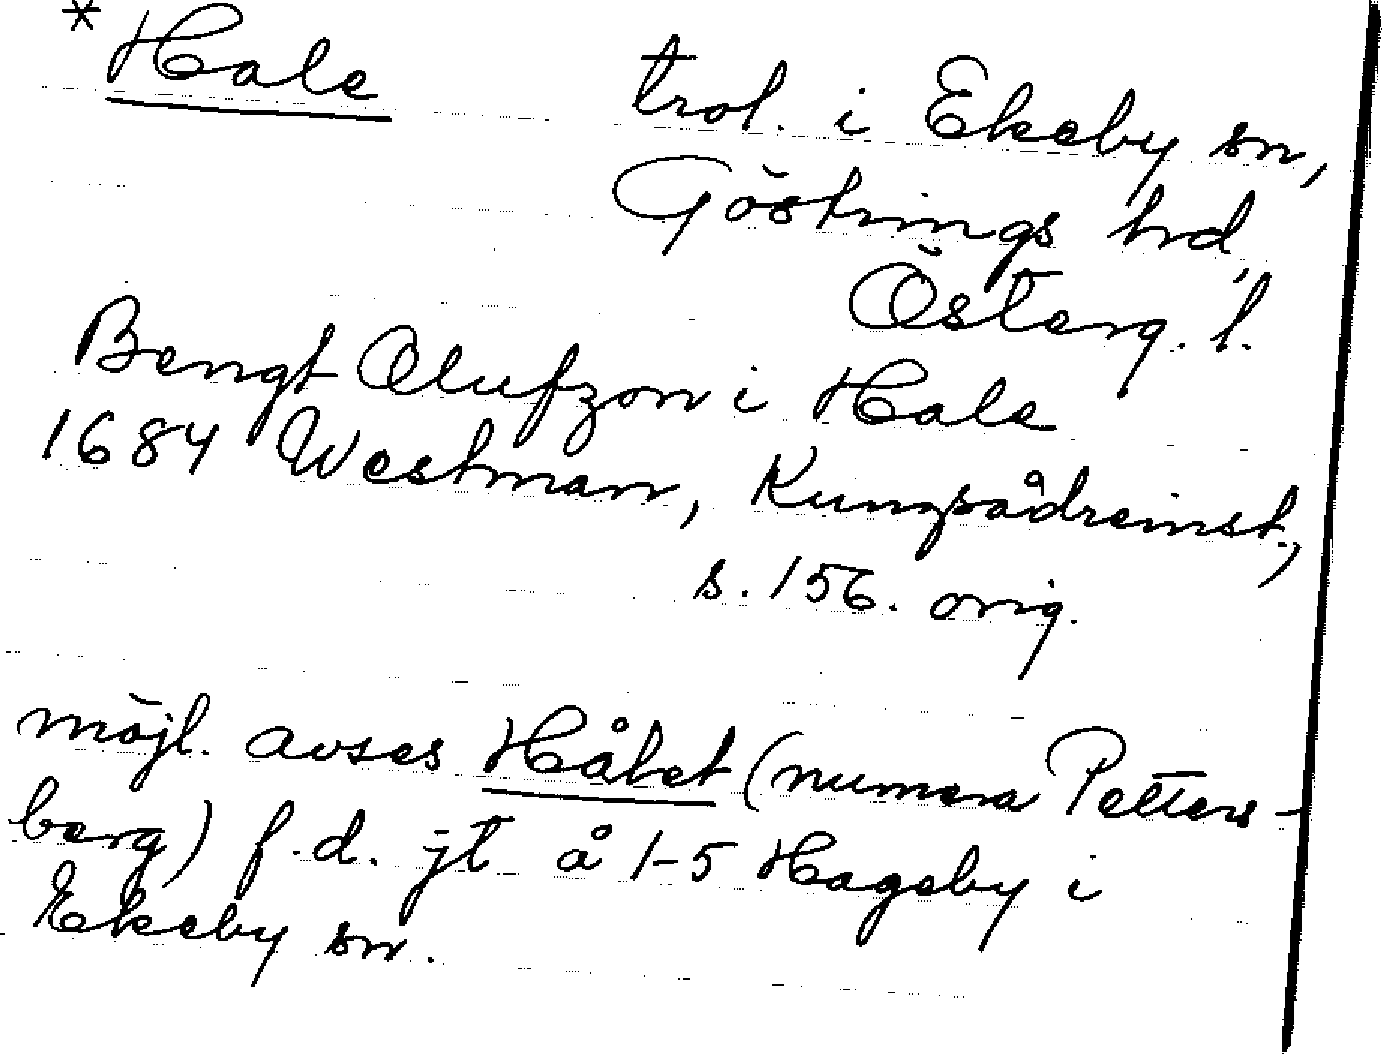 * Hale trol. i Ekeby sn,
Göstrings hd,
Österg. l.
Bengt Olufzon i Hale
1684 Westman, Kungsådreinst.,
s. 156. orig.
möjl. avses Hålet (numera Petters-
berg) f.d. jt å 1-5 Hageby i
Ekeby sn.